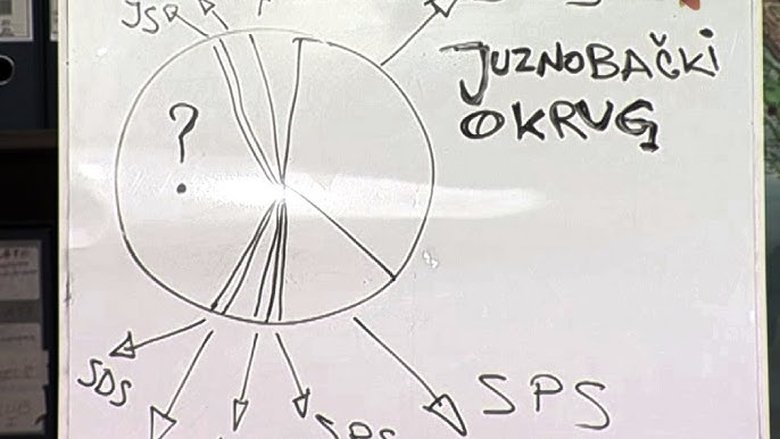 JSP
JUZNOBAČKI
OKRUG
?
SDS
SPS